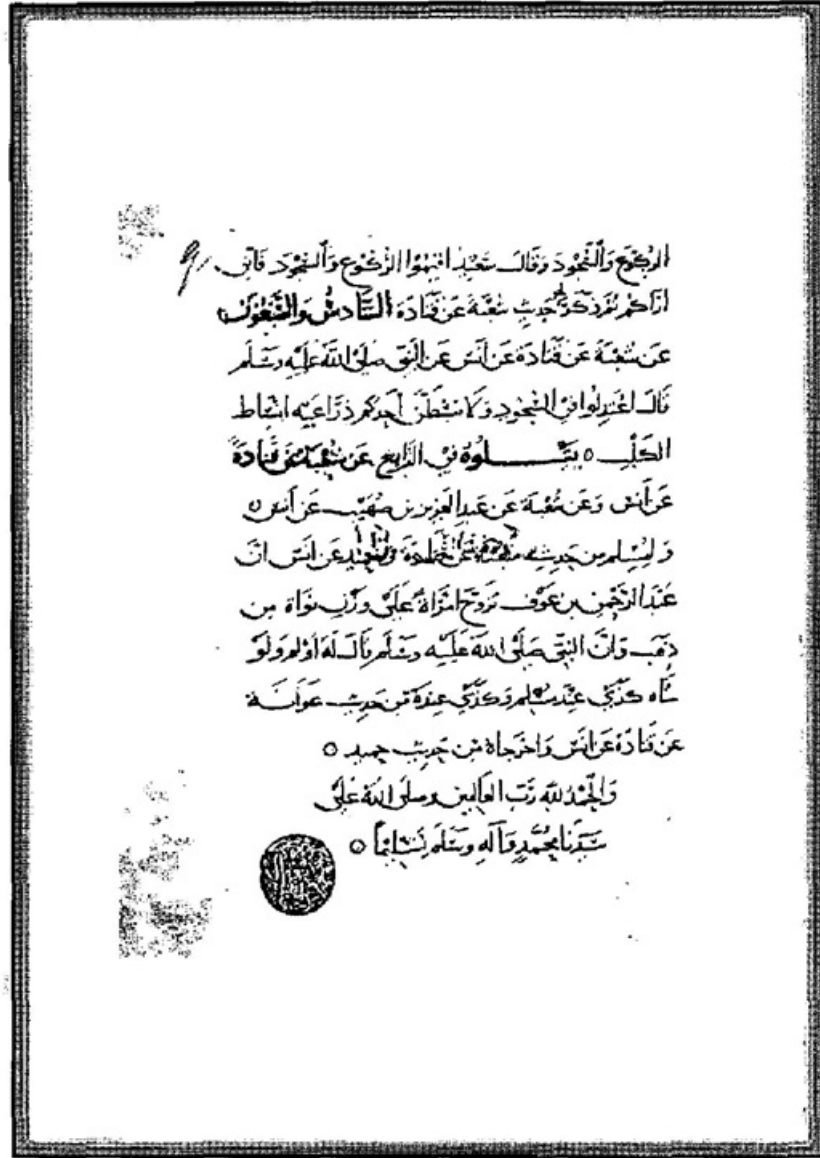 الركوع والسجود وقال سعيد اقيموا الركوع والسجود فاني
اراكم ثم ذكر حديث شعبة عن قتادة السادس والسبعون
عن شعبة عن قتادة عن انس عن النبي صلى الله عليه وسلم
قال اعتدلوا في السجود ولا يبسطن احدكم ذراعيه انبساط
الكلب ٥ يتلوه في الرابع عن شعبة عن قتادة
عن انس وعن شعبة عن عبد العزيز بن صهيب عن انس ٥
ولمسلم من حديث شعبة عن قتادة وحميد عن انس ان
عبد الرحمن بن عوف تزوج امراة على وزن نواة من
ذهب وان النبي صلى الله عليه وسلم قال له اولم ولو
بشاه كذي عند مسلم وكذي عنده من حديث عوانة
عن قتادة عن انس واخرجاه من حديث حميد ٥
والحمد لله رب العالمين وصلى الله على
سيدنا محمد وآله وسلم تسليما ٥